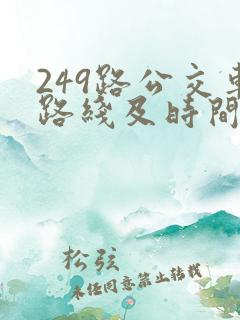 249路公交
路綫及時間
松弦
未经同意禁止转载